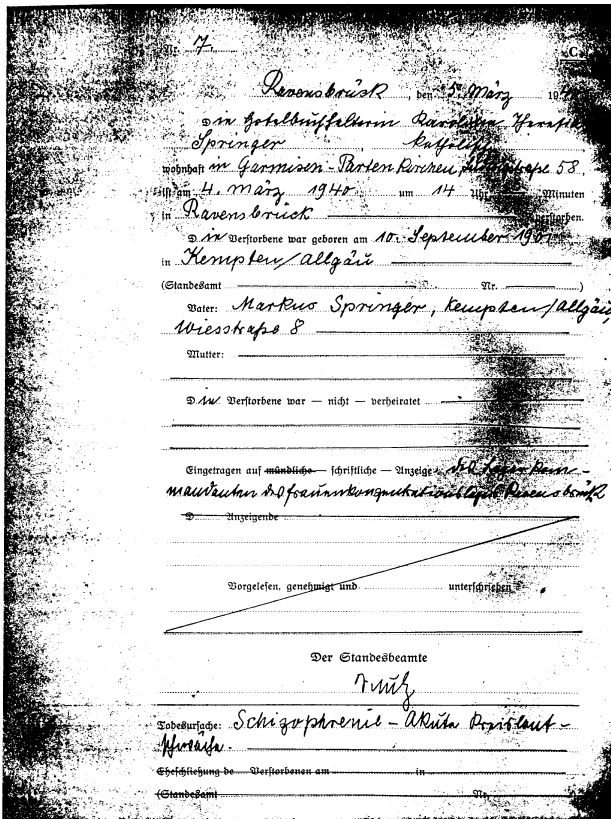 Nr. 7.
C.
Ravensbrück, den 5. März 19
Die Hotelbuchhalterin Karoline Theresia
Springer, katholisch
wohnhaft in Garmisch-Partenkirchen, 58
ist am 4. März 1940 um 14 Uhr Minuten
in Ravensbrück verstorben.
Die Verstorbene war geboren am 10. September
in Kempten/Allgäu
(Standesamt Nr. )
Vater: Markus Springer, Kempten/Allgäu,
Wiesstraße 8
Mutter:
Die Verstorbene war — nicht — verheiratet
Eingetragen auf mündliche — schriftliche — Anzeige des Lagerkom-
mandanten des Frauenkonzentrationslagers Ravensbrück
D Anzeigende
Vorgelesen, genehmigt und unterschrieben
Der Standesbeamte
Todesursache: Schizophrenie - Akute Kreislauf-
schwäche.
Eheschließung de Verstorbenen am in
(Standesamt Nr.